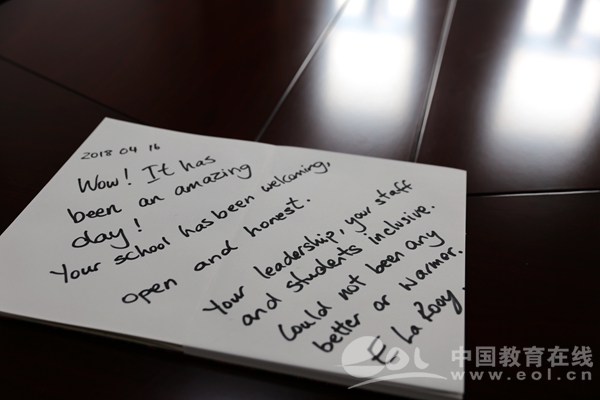 2018 04 16
Wow! It has
been an amazing
day!
Your school has been welcoming,
open and honest.
Your leadership, your staff
and students inclusive.
Could not been any
better or warmer.
La Rooy.
eol
中国教育在线
www.eol.cn